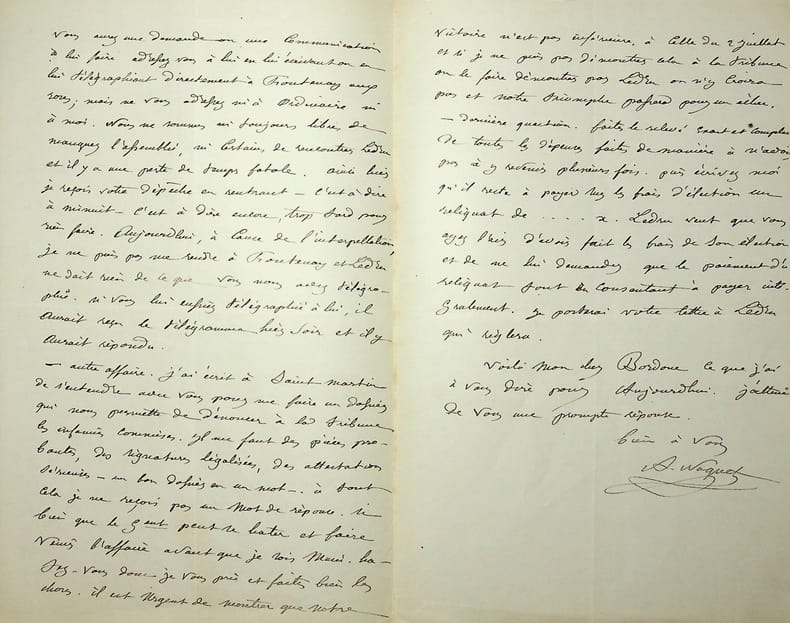 Vous aurez une demande ou une Communication
à lui faire adressez vous à lui en lui écrivant ou en
lui télégraphiant directement à Fontenay aux
roses; mais ne vous adressez ni à Ordinaire ni
à moi. Nous ne sommes ni toujours libres de
manquer l'assemblée, ni Certains de rencontrer Ledru
et il y a une perte de temps fatale. ainsi hier
je reçois votre dépêche en rentrant – C'est à dire
à minuit – C'est à dire encore, trop tard pour
rien faire. Aujourdhui, à Cause de l'interpellation,
je ne puis pas me rendre à Fontenay et Ledru
ne sait rien de ce que vous nous avez télégra-
phié. si vous lui eussiez télégraphié à lui, il
aurait reçu le télégramme hier soir et il y
aurait répondu.
– autre affaire. j'ai écrit à Saint martin
de s'entendre avec vous pour me faire un dossier
qui nous permette de dénoncer à la Tribune
les infamies commises. Il me faut des pièces pro-
bantes, des signatures légalisées, des attestations
sérieuses – un bon dossier en un mot –. à tout
Cela je ne reçois pas un Mot de réponse. si
bien que le peut se hater et faire
Venir l'affaire avant que je sois Muni. ha-
tez-vous donc je vous prie et faites bien les
choses. il est urgent de montrer que notre
Victoire n'est pas inférieure à Celle du 2 juillet
et si je ne puis pas démontrer cela à la Tribune
ou le faire démontrer par Ledru on n'y Croira
pas et notre Triomphe passera pour un échec.
– dernière question. faites le relevé exact et complet
de toutes les dépenses faites de manière à n'avoir
pas à y revenir plusieurs fois. puis écrivez moi
qu'il reste à payer sur les frais d'élection un
reliquat de . . . . x. Ledru veut que vous
ayez l'air d'avoir fait les frais de son élection
et de ne lui demander que le paiement d'un
reliquat tout en consentant à payer inté-
gralement. je porterai votre lettre à Ledru
qui réglera.
Voilà Mon cher Bordone ce que j'ai
à vous dire pour Aujourdhui. j'attends
de vous une prompte réponse.
bien à vous
A. Naquet